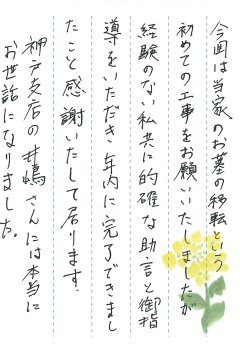 今回は当家のお墓の移転という
初めての工事をお願いいたしましたが
経験のない私共に的確な助言と御指
導をいただき年内に完了できまし
たこと感謝いたして居ります。
神戸支店の井嶋さんには本当に
お世話になりました。